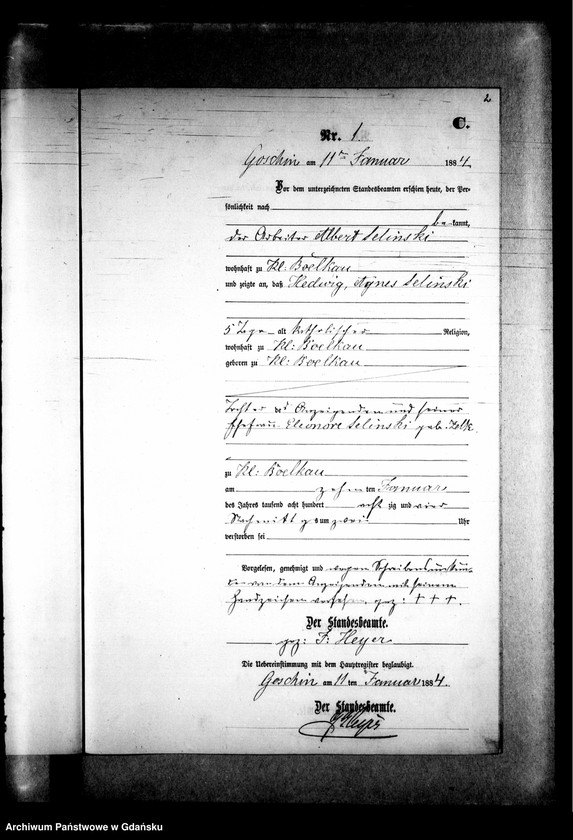 2
C.
Nr. 1.
Goschin am 11ten Januar 1884.
Vor dem unterzeichneten Standesbeamten erschien heute, der Per-
sönlichkeit nach
be kannt,
der Arbeiter Albert Selinski
wohnhaft zu Kl: Boelkau
und zeigte an, daß Hedwig, Agnes Selinski
5 Tage alt katholischer Religion,
wohnhaft zu Kl: Boelkau
geboren zu Kl: Boelkau
Tochter des Anzeigenden und seiner
Ehefrau Eleonore Selinski geb.
zu Kl: Boelkau
am zehn ten Januar
des Jahres tausend acht hundert acht zig und vier
Nachmittags um zwei Uhr
verstorben sei
Vorgelesen, genehmigt und wegen Schreibens
von dem Anzeigenden mit seinem
Handzeichen versehen, gez: + + +.
Der Standesbeamte.
gez: F. Heyer
Die Uebereinstimmung mit dem Hauptregister beglaubigt.
Goschin am 11 ten Januar 1884.
Der Standesbeamte.
Heyer
Archiwum Państwowe w Gdańsku